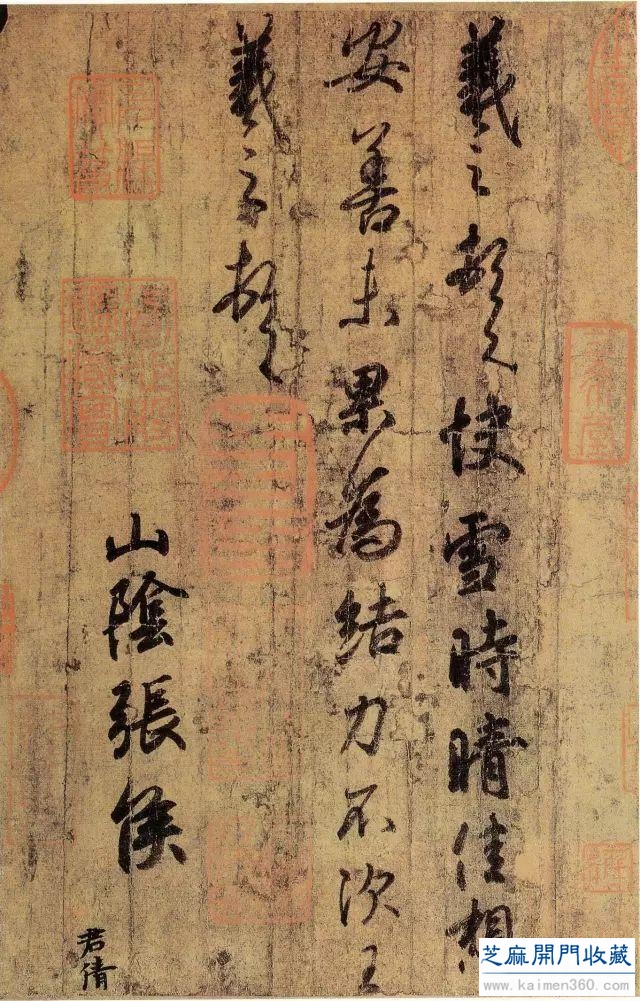 羲之頓首快雪時晴佳想
安善未果為結力不次王
羲之頓首
山陰張侯
君倩
三希堂
芝麻開門收藏
www.kaimen360.com